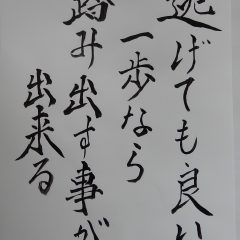 逃げても良い
一歩なら
踏み出す事が
出来る